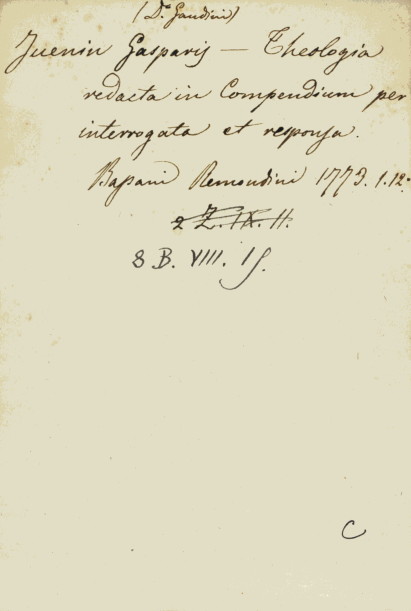 (Dr. Gaudini)
Juenin Gasparis — Theologia
redacta in Compendium per
interrogata et responsa.
Bassani Remondini 1773. 1.12.
2 Z. IX. H.
8 B. VIII. 15.
C